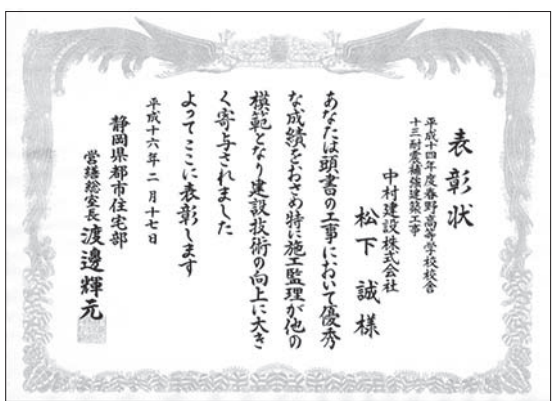 表彰状
平成十四年度春野高等学校校舎
十三耐震補強建築工事
中村建設株式会社
松下誠様
あなたは頭書の工事において優秀
な成績をおさめ特に施工監理が他の
模範となり建設技術の向上に大き
く寄与されました
よってここに表彰します
平成十六年二月十七日
静岡県都市住宅部
営繕総室長渡邊輝元